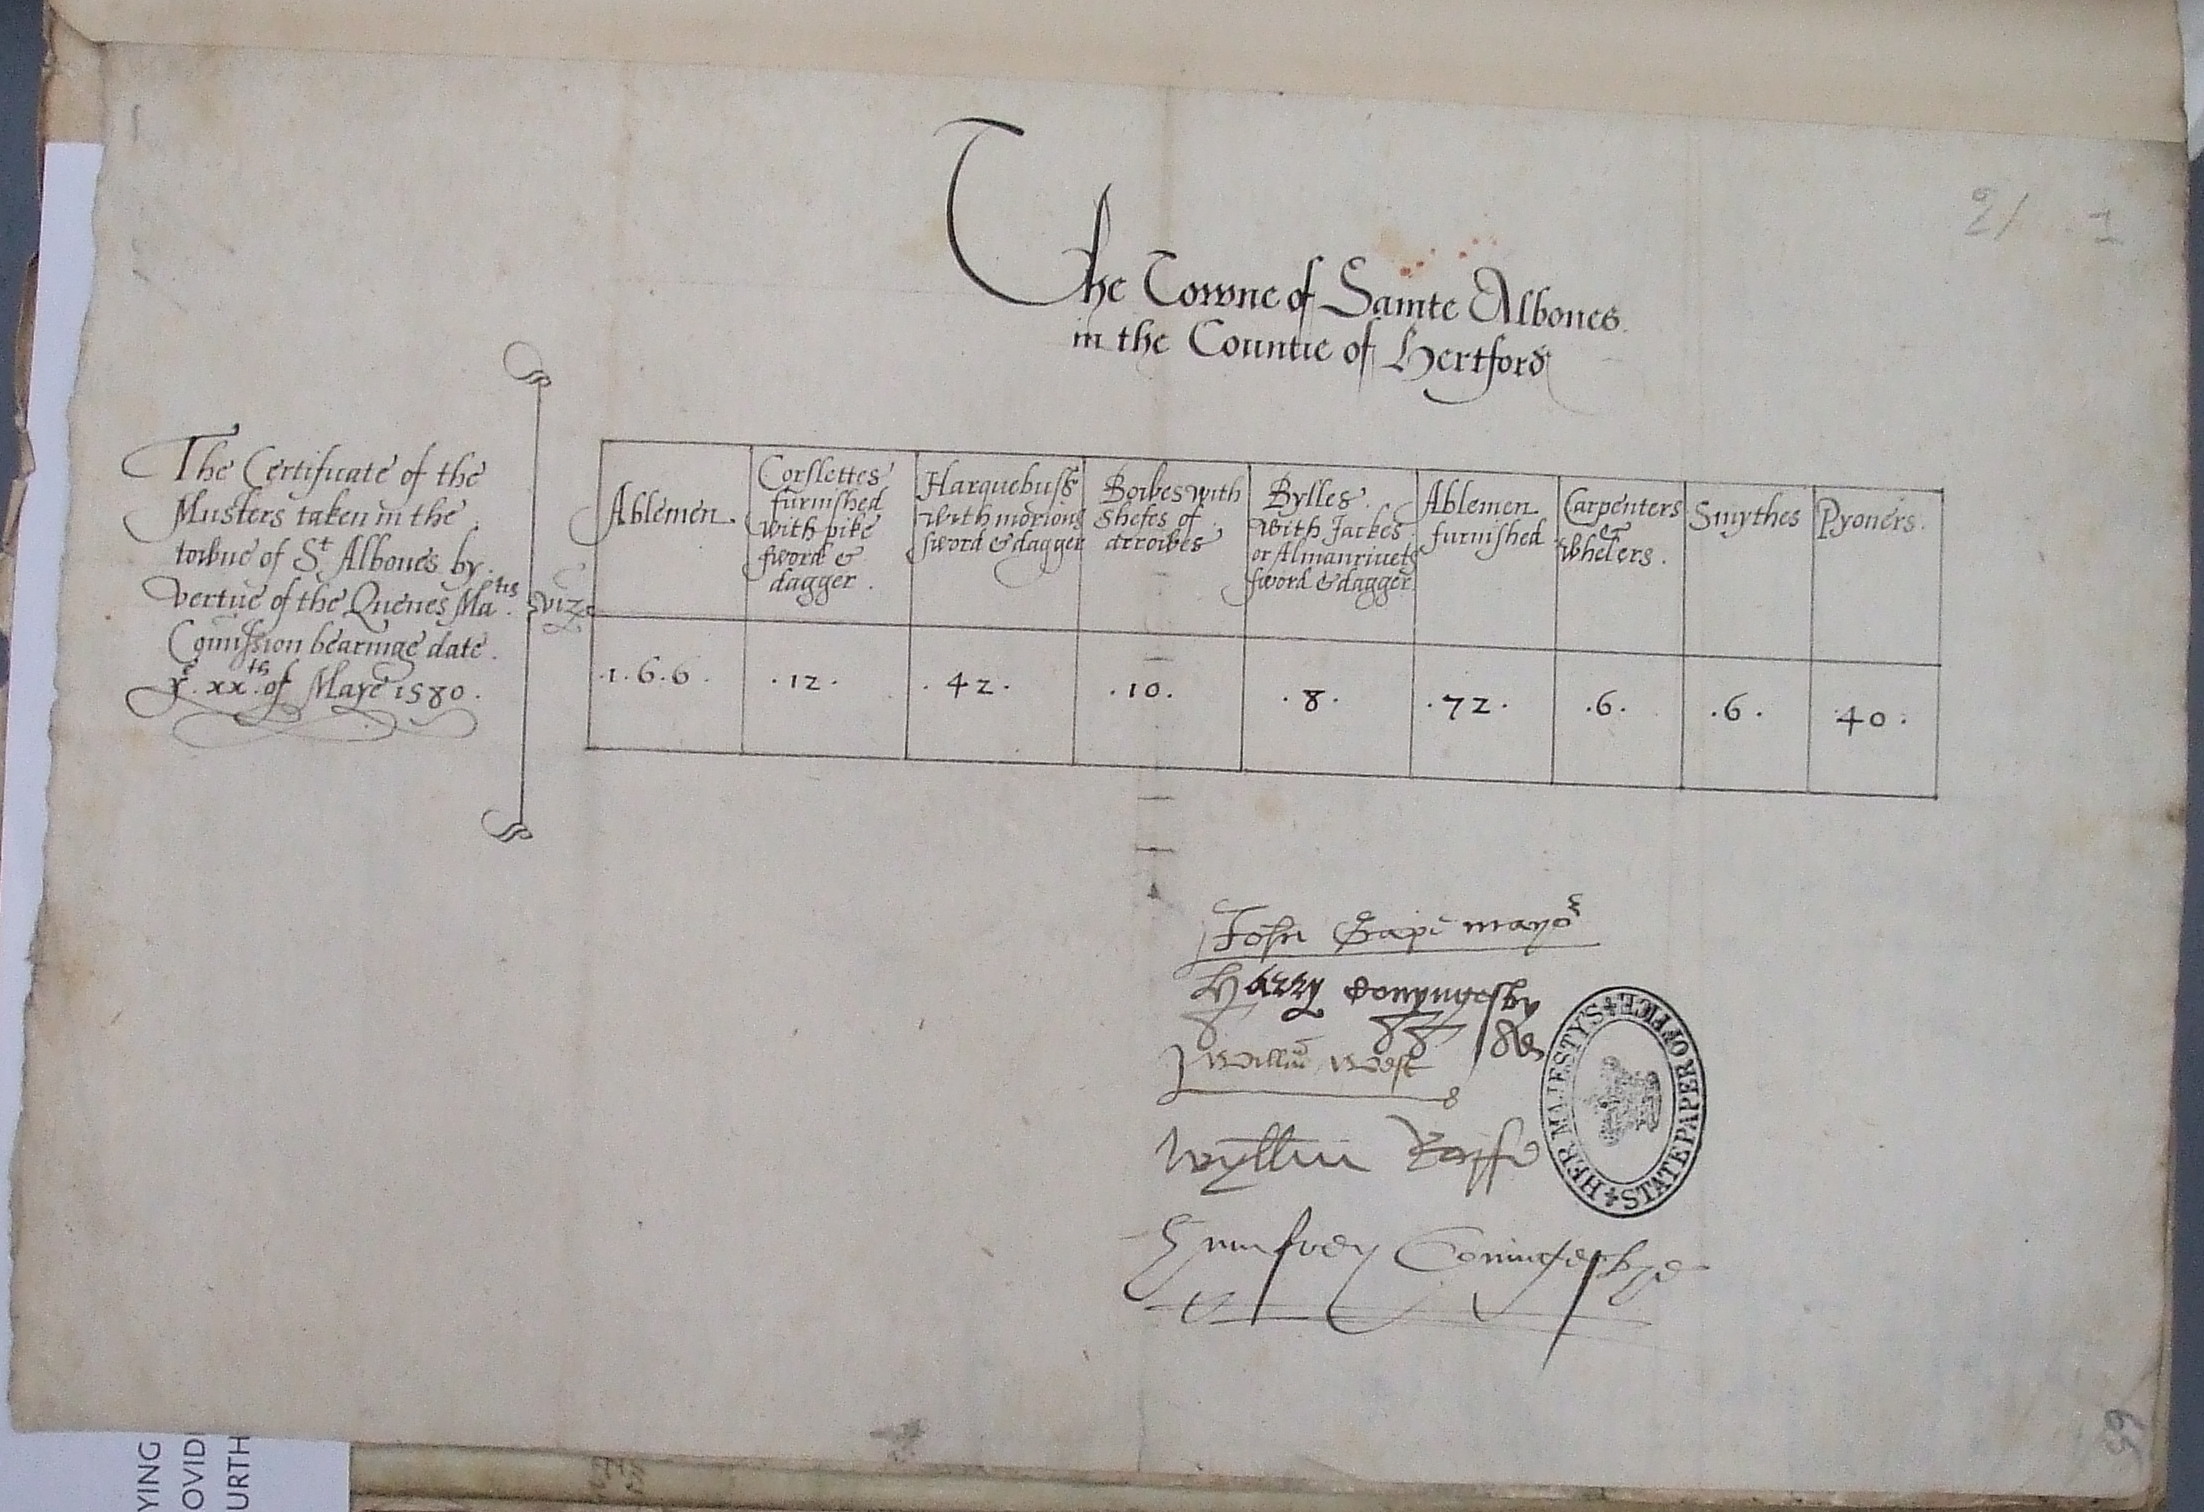 The Towne of Sainte Albones
in the Countie of Hertford
2/ 1
The Certificate of the
Musters taken in the
towne of St Albones by
vertue of the Quenes Matis
Comission bearinge date
ye .xxth. of Maye 1580.
viz
Ablemen.
Corslettes
furnished
with pike
sword &
dagger.
Harquebuss
with morions
sword & dagger
Bowes with
Shefes of
arrowes
Bylles
with Jackes
or Almanrivets
sword & dagger
Ablemen
furnished
Carpenters
&
whelers.
Smythes
Pyoners.
.1.6.6.
.12.
.42.
.10.
.8.
.72.
.6.
.6.
40.
John Gape mayor
Harry Conyngesby
Willm West
Wyllm
Humfrey Coningesbye
HER MAJESTY'S STATE PAPER OFFICE
65
YING
OVID
URTH